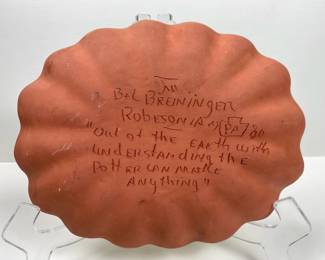 B+L BREININGER
ROBESONIA PA '00
"OUT OF THE EARTH WITH
UNDERSTANDING THE
POTTER CAN MAKE
ANYTHING"